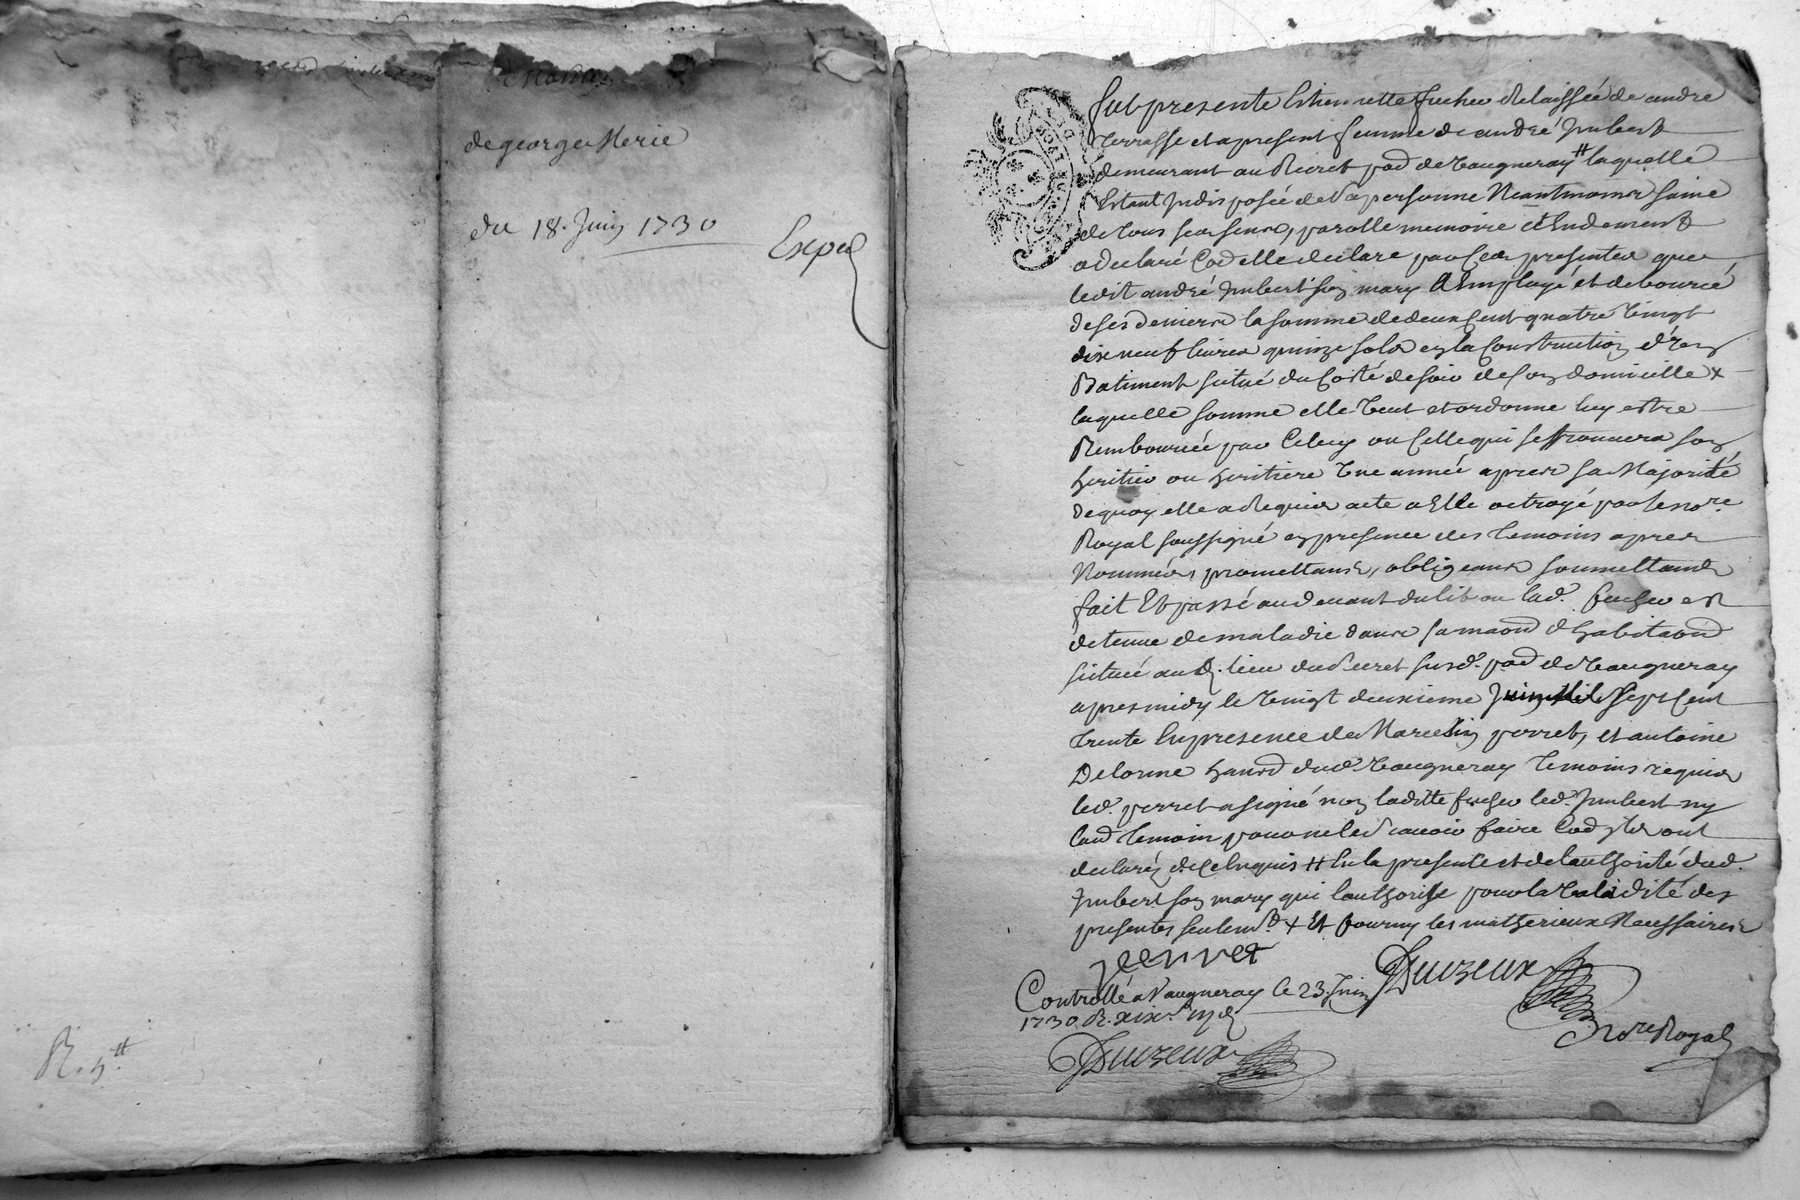 de george Merie
du 18. Juin 1730
Exped
R. 5.#
fut presente Estiennette fucher delaissée de andre
terrasse et a present femme de andré Imbert
demeurant au Recret pad de Vaugneray # laquelle
Estant Indisposée de sa personne Neantmoins saine
de tous ses sens, parolle memoire et Endement
a declaré Cod elle declare par Ces presentes que
ledit andré Imbert son mary a Employé et debourcé
de ses deniers la somme de deux Cent quatre Vingt
dix neuf livres quinze sols en la Construction d'ung
Batiment situé du Costé de soir de son domicille x
laquelle somme elle Veut et ordonne luy estre
Rembourcée par Celuy ou Celle qui se trouvera son
heritier ou heritiere Une année apres sa Majorité
de quoy elle a Requis acte a Elle octroyé par le nore.
Royal soussigné en presence des temoins apres
Nommés, promettant, obligeant soumettant
fait Et passé au devant du lit ou lad. fucher est
detenue de maladie dans sa maond d'habitaond
située aud. lieu du Recret susd. pad de Vaugneray
apres midy le Vingt deuxieme Juin Mil Sept Cent
trente En presence de Marcelin perret, et antoine
Delorme hantd dud. Vaugneray temoins requis
led. perret a signé non laditte fucher led. Imbert ny
laud temoin pour ne le scavoir faire Cod ils ont
declaré de Ce Enquis # En la presente et de lauthorité dud.
Imbert son mary qui lauthorise pour la Validité des
presentes seulemt. x Et fourny les matherieux Necessaires
perret
Duzeux
Nore Royal
Controllé a Vaugneray le 23. Juin
1730. R.
Duzeux